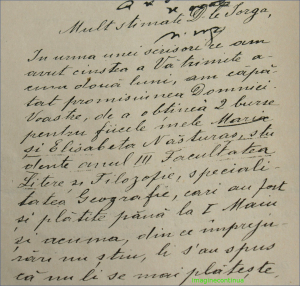 Mult stimate D-le Iorga,
In urma unei scrisori ce am
avut cinstea a Vă trimete a-
cum două luni, am căpă-
tat promisiunea Domniei-
Voastre, de a obținea 2 burse
pentru fiicele mele Maria
și Elisabeta Năsturaș, stu
dente anul III Facultatea
Litere și Filozofie, speciali
tatea Geografie, cari au fost
și plătite până la I Maiu
și acuma, din ce împreju-
rări nu știu, li s'au spus
că nu li se mai plătește,